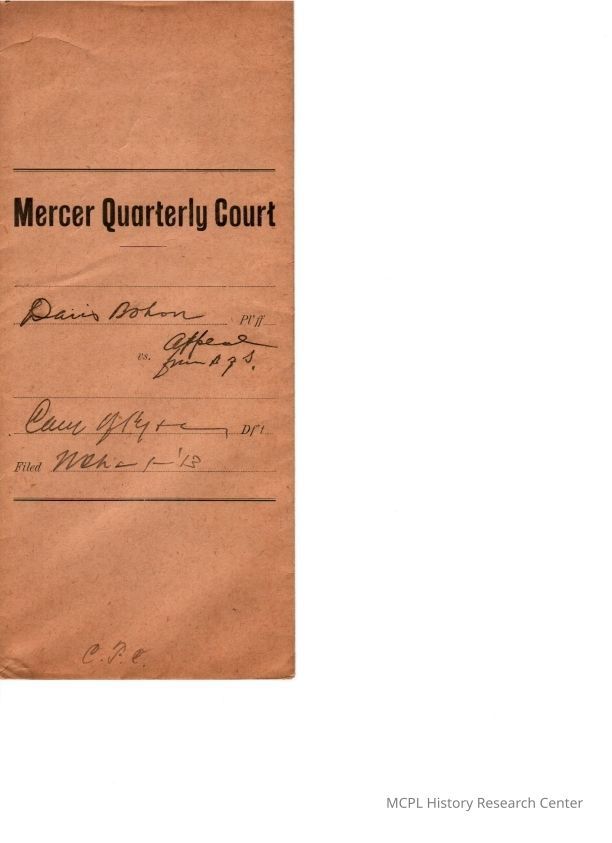 Mercer Quarterly Court
Davis Bohon Pl'ff
Appeal
vs. from
Com of Ky Df't
Filed '13
C.P.C.
MCPL History Research Center